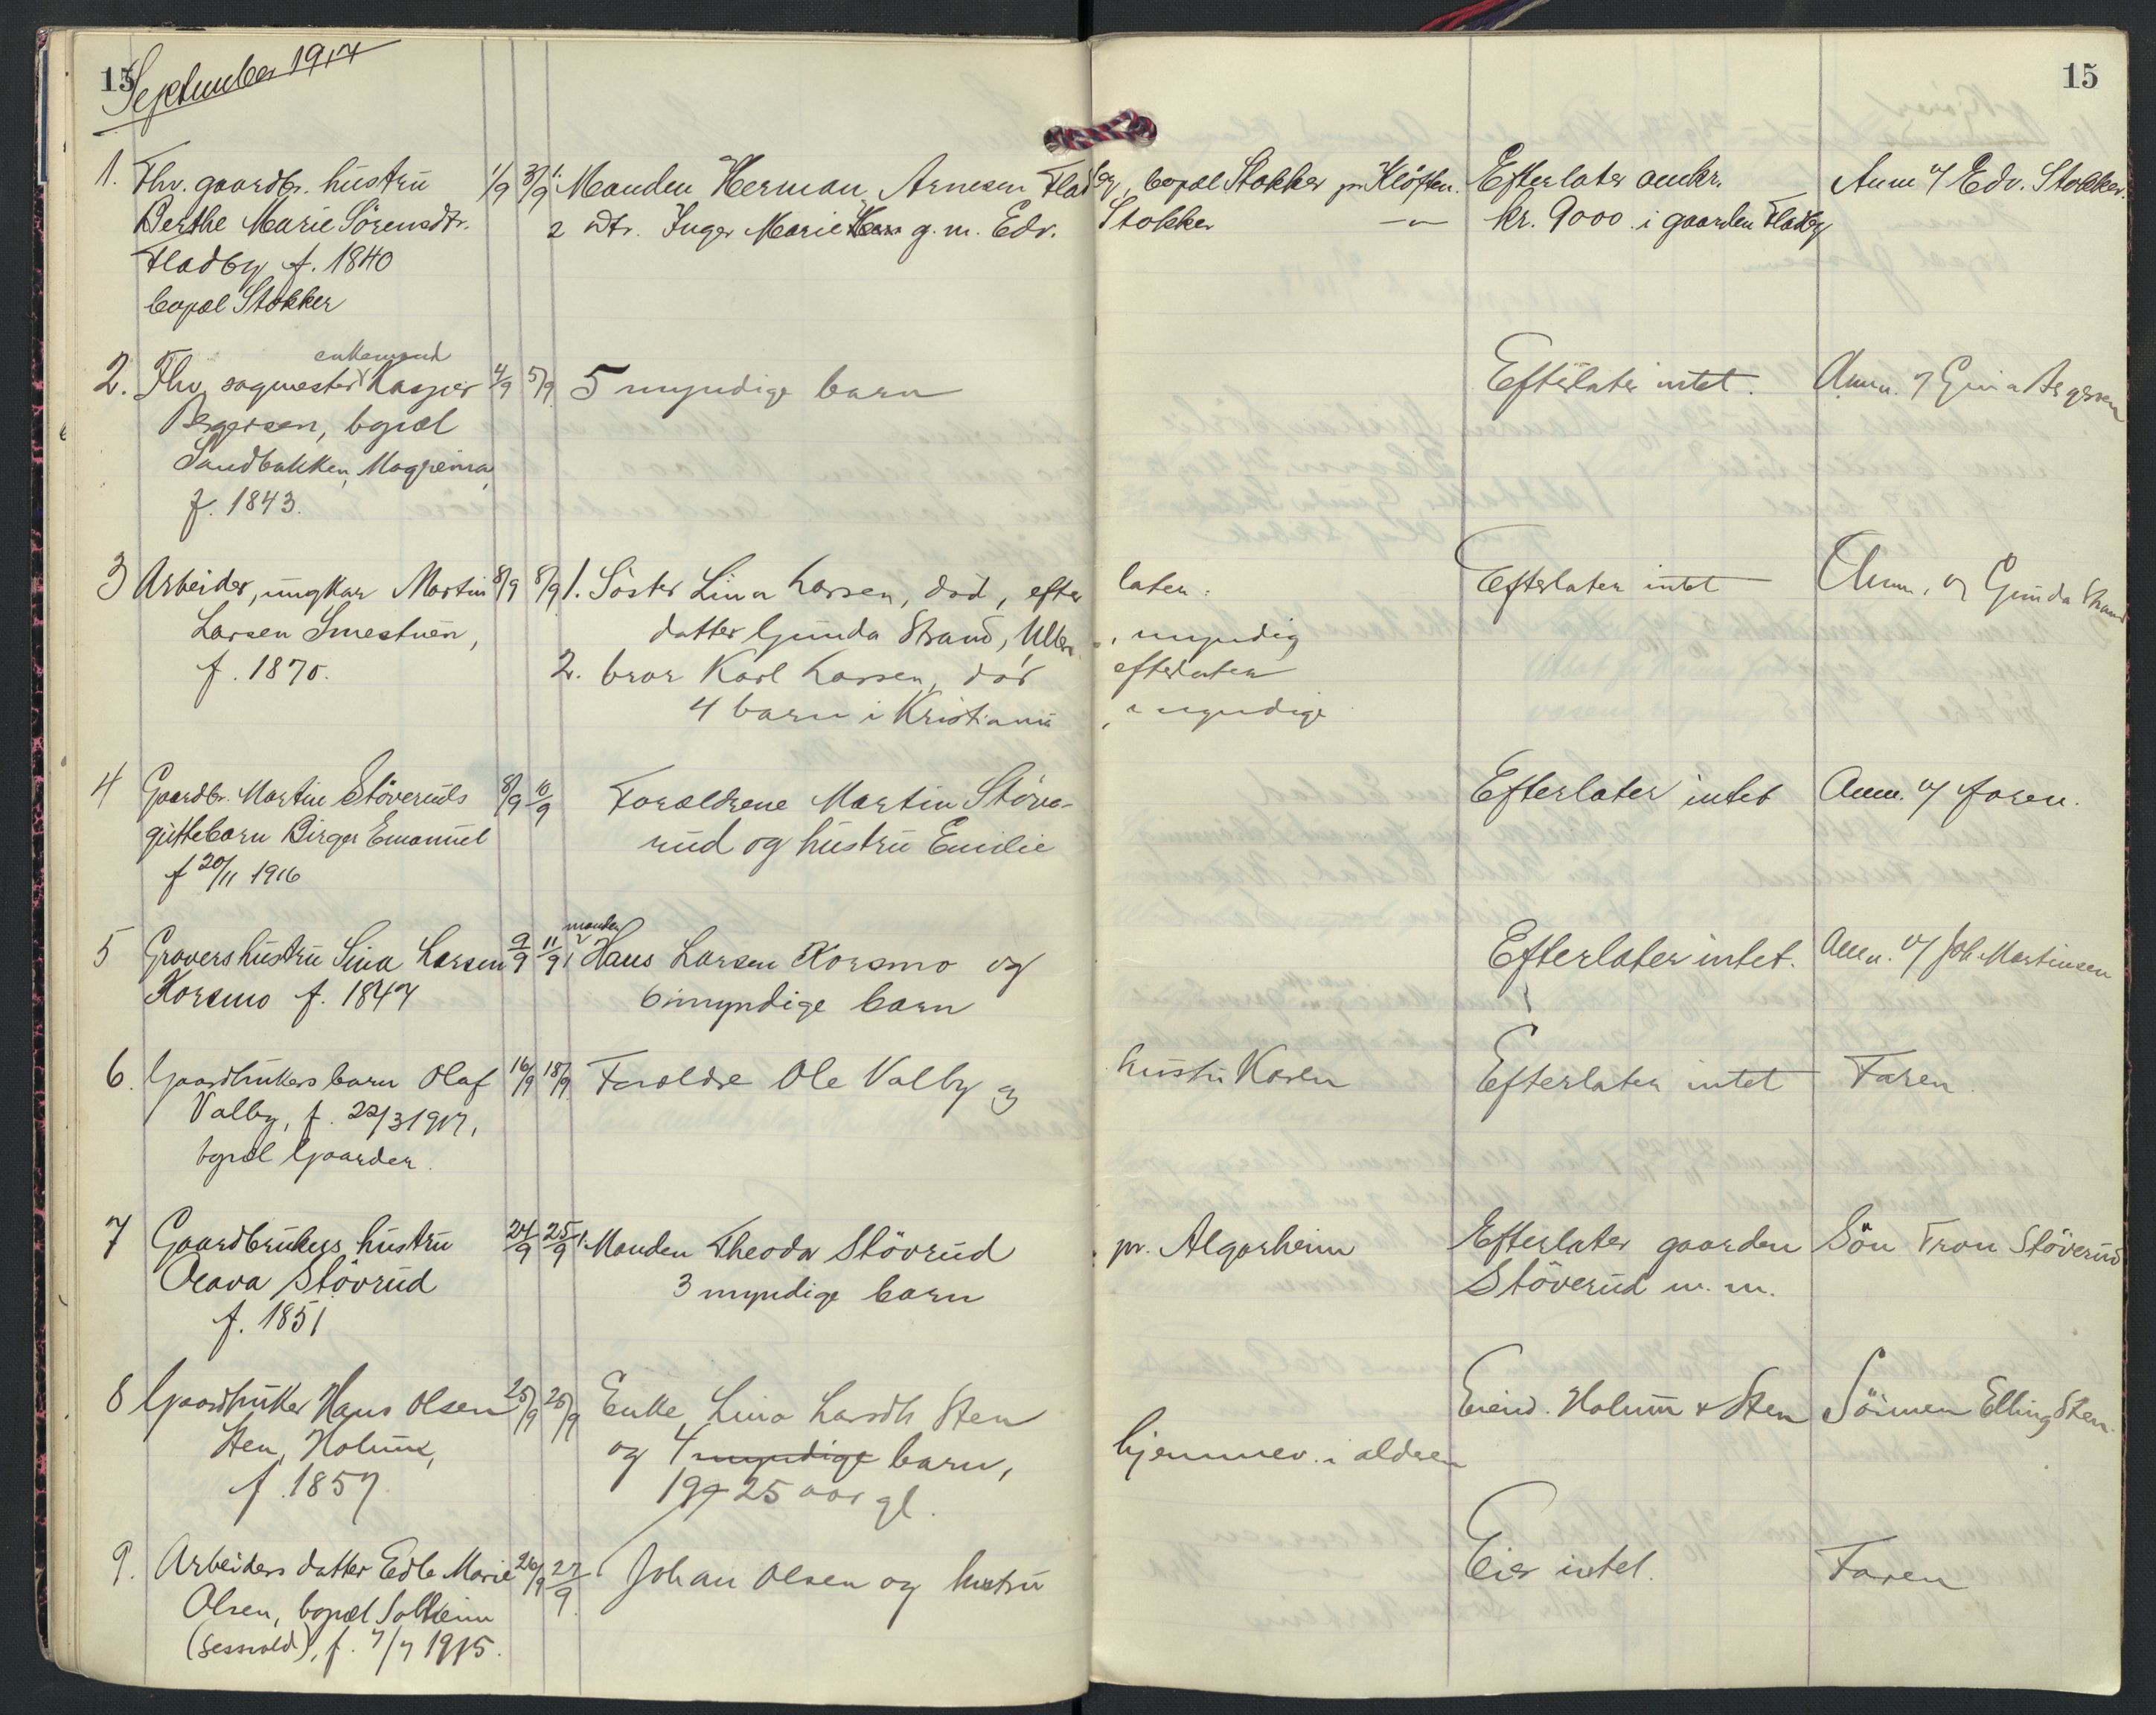 15
September 1917
15
1. Fhv. gaardbr. hustru 1/9 3/9 1. Manden Herman Arnesen Fladby, bopæl Stokker pr. Kløften. Efterlater omkr. Anm. af Edv. Stokker.
Berthe Marie Sørensdtr. 2 Dtr. Inger Marie g. m. Edv. Stokker — " — kr. 9000 i gaarden Fladby
Fladby f. 1840
bopæl Stokker
enkemand
2. Fhv. sagmester Kasper 4/9 5/9 5 myndige barn Efterlater intet. Anm. af Gina Bergersen
Bergersen, bopæl
Sandbakken, Mogreina,
f. 1843.
3 Arbeider, ungkar Martin 8/9 8/9 1. Søster Lina Larsen, død, efterlater: Efterlater intet Anm. af Gunda Strand
Larsen Smestuen, datter Gunda Strand, myndig
f. 1870. 2. bror Karl Larsen, død efterlater
4 barn i Kristiania, myndige
4 Gaardbr. Martin Støveruds 8/9 10/9 Forældrene Martin Støve- Efterlater intet Anm. af faren.
guttebarn Birger Emanuel rud og hustru Emilie
f 20/11 1916
manden
5 Gravers hustru Lina Larsen 9/9 11/9 1 Hans Larsen Korsmo og Efterlater intet. Anm. af Joh. Martinsen
Korsmo f. 1847 6 myndige barn
6. Gaardbrukers barn Olaf 16/9 18/9 Forældre Ole Valby og hustru Karen Efterlater intet Faren.
Valby, f. 22/3 1917,
bopæl Gaarder.
7 Gaardbrukers hustru 24/9 25/9 1. Manden Theodor Støvrud pr. Algarheim Efterlater gaarden Søn Tron Støverud
Olava Støvrud 3 myndige barn Støverud m. m.
f. 1851
8 Gaardbruker Hans Olsen 25/9 26/9 Enke Lina Larsdtr Sten Eiend. Holum & Sten Sønnen Elling Sten.
Sten, Holum, og 4 myndige barn, hjemmev. i alderen
f. 1857 19 - 25 aar gl.
9. Arbeiders datter Edle Marie 26/9 27/9 Johan Olsen og hustru Eier intet. Faren
Olsen, bopæl Solheim
(Jessvold), f. 7/7 1915.